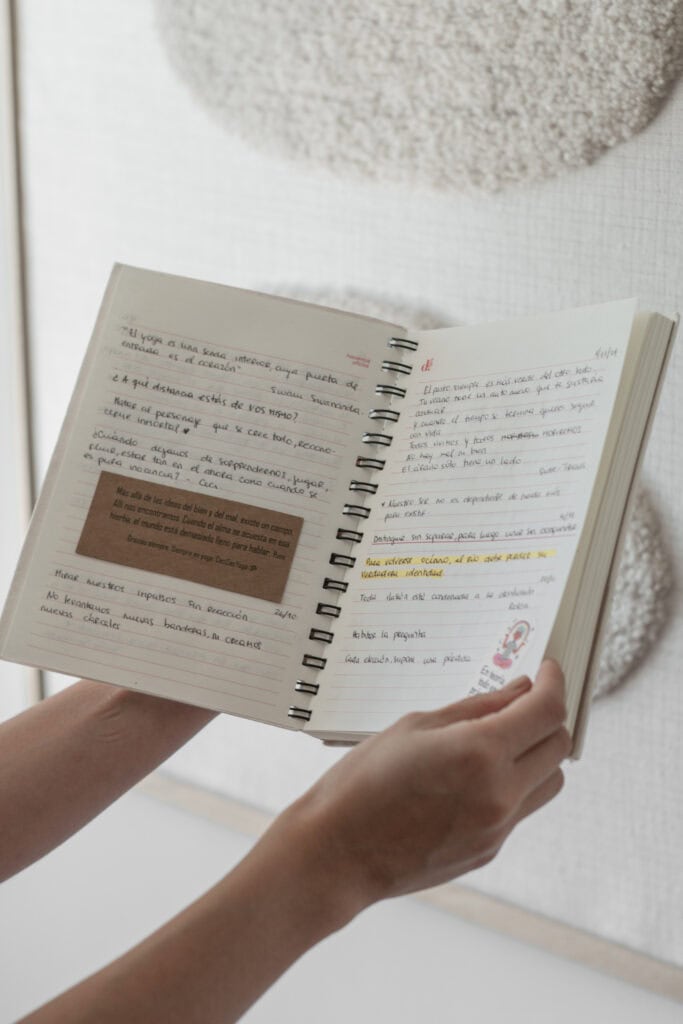 "El yoga es una senda interior, cuya puerta de
entrada es el corazón"
Swami Sivananda.
¿A qué distancia estás de VOS MISMO?
Matar al personaje que se cree todo, recono-
cerme inmortal ♥
¿Cuándo dejamos de sorprendernos, jugar,
estar tan en el ahora como cuando se
es pura inocencia? - Ceci.
Más allá de las ideas del bien y del mal, existe un campo.
Allí nos encontramos. Cuando el alma se acuesta en esa
hierba, el mundo está demasiado lleno para hablar. Rumi
Gracias siempre. Siempre es yoga.
Mirar nuestros impulsos sin reacción
24/10
No levantamos nuevas banderas, ni creamos
nuevas cárceles
El pasto siempre es más verde del otro lado.
Tu vecino tiene un auto nuevo que te gustaría
Y cuando el tiempo se termina, quieres seguir
con vida
Todos vivimos y todos morimos
No hay mal ni bien
El círculo sólo tiene un lado
* Nuestro Ser no es dependiente de nada más
para existir
Distingue sin separar, para luego unir sin
Para volverse océano, el río debe perder su
verdadera identidad.
Toda ilusión está condenada a la
Habitar la pregunta
Cada elección, supone una pérdida
En teoría
todo